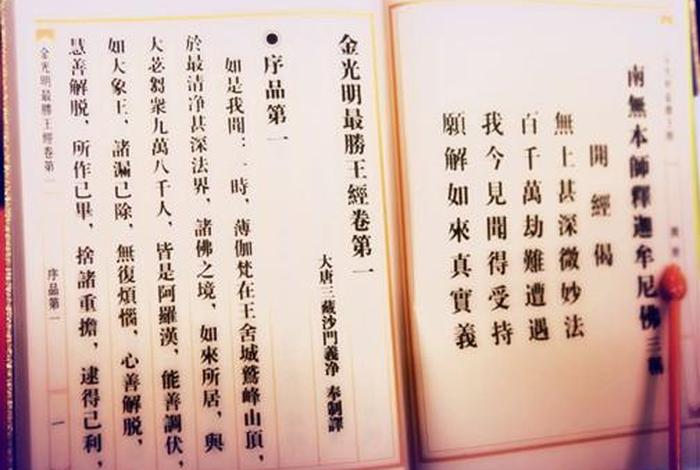 南無本師釋迦牟尼佛三稱
開經偈
無上甚深微妙法
百千萬劫難遭遇
我今見聞得受持
願解如來真實義
金光明最勝王經卷第一
大唐三藏沙門義净 奉制譯
●序品第一
如是我聞：一時，薄伽梵在王舍城鷲峰山頂，
於最清净甚深法界，諸佛之境，如來所居，與
大苾芻衆九萬八千人，皆是阿羅漢，能善調伏，
如大象王，諸漏已除，無復煩惱，心善解脱，
慧善解脱，所作已畢，捨諸重擔，逮得己利，
金光明最勝王經卷第一
序品第一
一